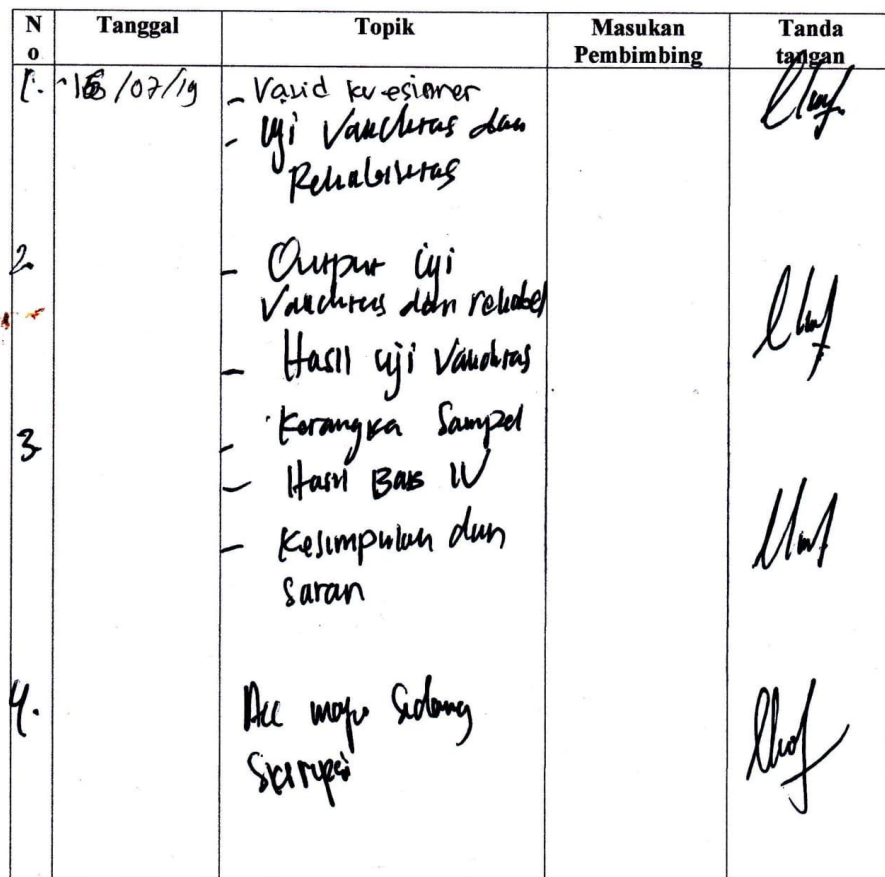 No Tanggal Topik Masukan Pembimbing Tanda tangan
1. /07/19 - Valid kuesioner
- Uji Validitas dan
Reliabilitas
2. - Output Uji
Validitas dan reliabel
- Hasil uji Validitas
3. - Kerangka Sampel
- Hasil Bab IV
- Kesimpulan dan
Saran
4. Acc maju Sidang
Skripsi